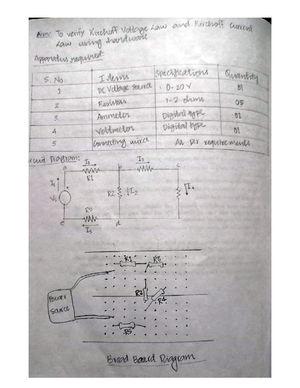 To verify Kirchoff Voltage Law and Kirchoff Current
Law using hardware
Apparatus required:
S. No. Items Specifications Quantity
1 DC Voltage Source 0-20V 01
2 Resistors 1-2 ohms 05
3 Ammeter Digital type 01
4 Voltmeter Digital type 01
5 Connecting wires As per requirements
Circuit Diagram:
I1 I3
R1
I1
R2 I2 I4
R5
I5
R1 R3
Power
Source
R2 R4
R5
Bread Board Diagram